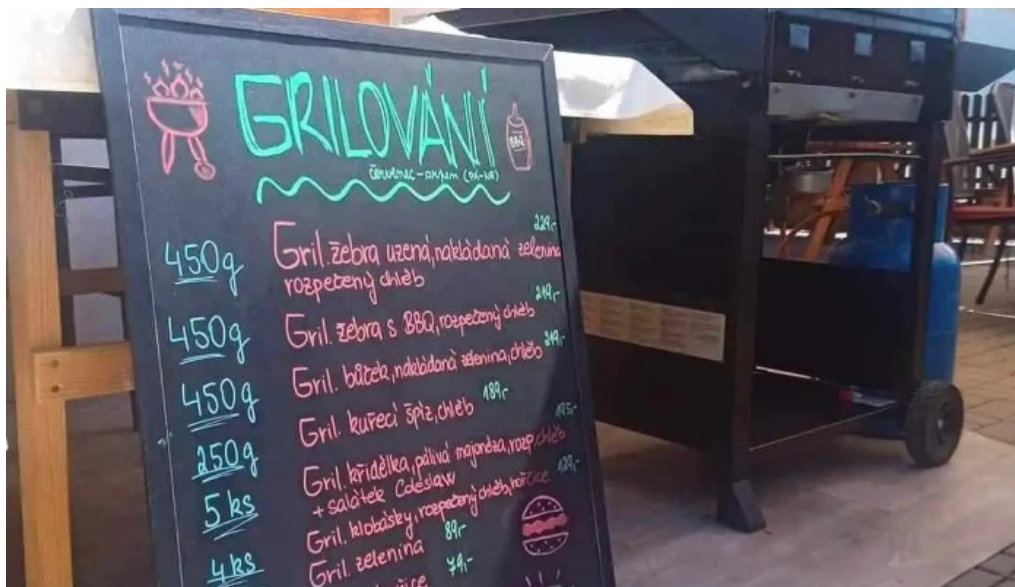 GRILOVÁNÍ
BBQ
červenec-srpen
229,-
450g Gril. žebra uzená, nakládaná zelenina
rozpečený chléb
219,-
450g Gril. žebra s BBQ, rozpečený chléb
219,-
450g Gril. bůček, nakládaná zelenina, chléb
189,-
250g Gril. kuřecí špíz, chléb
195,-
5 ks Gril. křidélka, pálivá majonéza, rozp. chléb
+ salátek Coleslaw
129,-
4 ks Gril. klobásky, rozpečený chléb, hořčice
Gril. zelenina 89,-
79,-